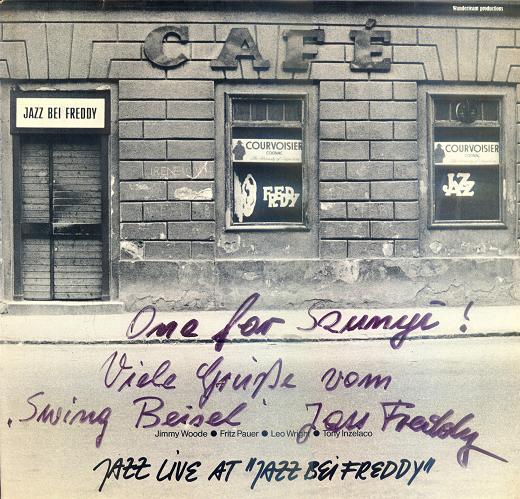 Wunderteam productions
CAFÉ
JAZZ BEI FREDDY
COURVOISIER
COGNAC
COURVOISIER
COGNAC
FREDDY
JAZZ
One for Szunyi!
Viele Grüße vom
"Swing Beisel" Jazz Freddy
Jimmy Woode ● Fritz Pauer ● Leo Wright ● Tony Inzelaco
JAZZ LIVE AT "JAZZ BEI FREDDY"